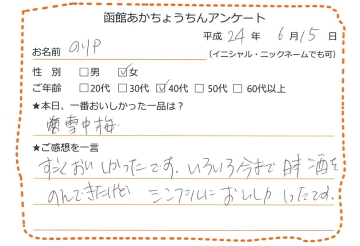 函館あかちょうちんアンケート
平成 24 年 6月 15 日
お名前 のりP (イニシャル・ニックネームでも可)
性 別 □男 ☑女
ご年齢 □20代 □30代 ☑40代 □50代 □60代以上
★本日、一番おいしかった一品は？
雪中梅
★ご感想を一言
すごくおいしかったです。いろいろ今まで 酒を
のんできた シンプルに おいしかったです。